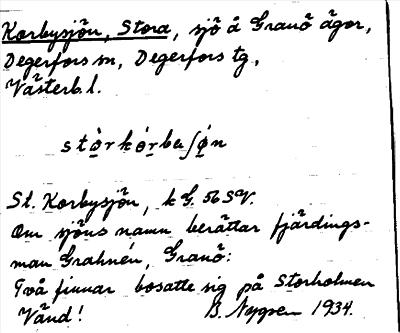 Korbysjön, Stora, sjö å Granö ägor,
Degerfors sn, Degerfors tg,
Västerb. l.
stòrkórbaʃǿn
St. Korbysjön, k G. 56 SV.
Om sjöns namn berättar fjärdings-
man Grahnén, Granö:
Två finnar bosatte sig på Storholmen
Vänd! B. Nygren 1934.